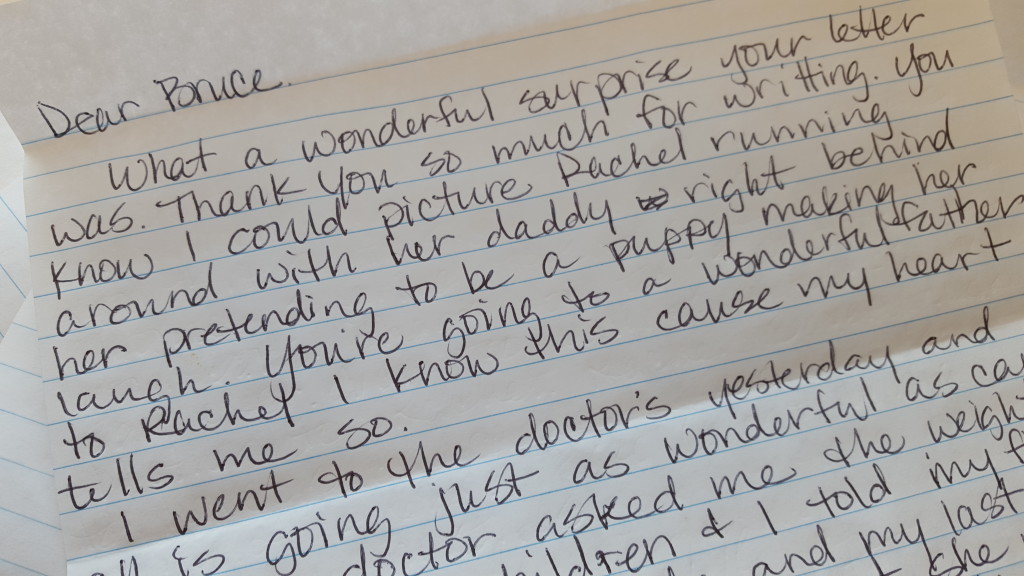 Dear Bruce.
What a wonderful surprise your letter
was. Thank you so much for writting. You
know I could picture Rachel running
around with her daddy right behind
her pretending to be a puppy making her
laugh. You're going to a wonderful father
to Rachel I know this cause my heart
tells me so.
I went to the doctor's yesterday and
is going just as wonderful as
doctor asked me the
& I told my
and my last
the